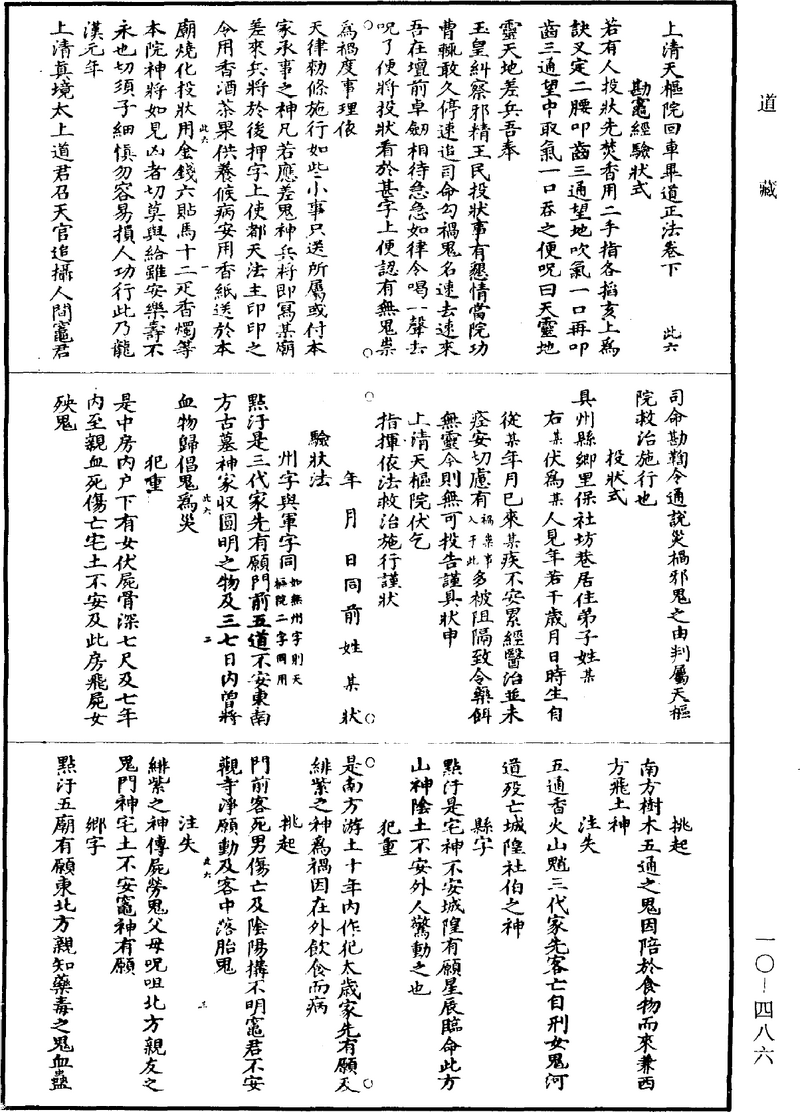 道藏
上清天樞院回車畢道正法卷下 此六
勘竈經驗狀式
若有人投狀先焚香用二手指各掐亥上爲
訣又定二腰叩齒三通望地吹氣一口再叩
齒三通望中取氣一口吞之便呪曰天靈地
靈天地差兵吾奉
玉皇糾察邪精王民投狀事有懇情當院功
曹輙敢久停速追司命勾禍鬼名速去速來
吾在壇前卓劒相待急急如律令喝一聲去
呪了便將投狀看於甚字上便認有無鬼祟
爲禍度事理依
天律勑條施行如些小事只送所屬或付本
家承事之神凡若應差鬼神兵將即冩某廟
差來兵將於後押字上使都天法主印印之
令用香酒茶果供養候病安用香紙送於本
廟燒化投狀用金錢六貼馬十二疋香燭等
本院神將如見凶者切莫與給雖安樂壽不
永也切須子細愼勿容易損人功行此乃龍
漢元年
上清眞境太上道君召天官追攝人間竈君
司命勘鞫令通說災禍邪鬼之由判屬天樞
院救治施行也
投狀式
具州縣鄉里保社坊巷居住弟子姓某
右某伏爲某人見年若干歲月日時生自
從某年月已來某疾不安累經醫治並未
痊安切慮有禍祟事入于此多被阻隔致令藥餌
無靈今則無可投告謹具狀申
上清天樞院伏乞
指揮依法救治施行謹狀
年月日同前姓某狀
驗狀法
州字與軍字同如無州字則天樞院二字同用
點汙是三代家先有願門前五道不安東南
方古墓神家収圓明之物及三七日內曾將
血物歸倡鬼爲災
犯重
是中房內户下有女伏屍骨深七尺及七年
內至親血死傷亡宅土不安及此房飛屍女
殃鬼
挑起
南方樹木五通之鬼因陪於食物而來兼西
方飛土神
注失
五通香火山魈三代家先客亡自刑女鬼河
道歿亡城隍社伯之神
縣字
點汙是宅神不安城隍有願星辰臨命此方
山神陰土不安外人驚動之也
犯重
是南方游土十年內作犯太歲家先有願及
緋紫之神爲禍因在外飲食而病
挑起
門前客死男傷亡及陰陽搆不明竈君不安
觀寺淨願動及客中落胎鬼
注失
緋紫之神傳屍勞鬼父母呪咀北方親友之
鬼門神宅土不安竈神有願
鄉字
點汙五廟有願東北方親知藥毒之鬼血蠱
一〇—四八六